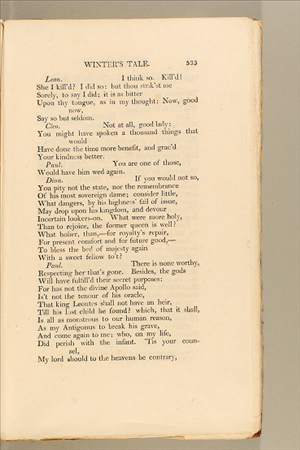 WINTER'S TALE. 533
Leon. I think so. Kill'd!
She I kill'd? I did so: but thou strik'st me
Sorely, to say I did; it is as bitter
Upon thy tongue, as in my thought: Now, good
now,
Say so but seldom.
Cleo. Not at all, good lady:
You might have spoken a thousand things that
would
Have done the time more benefit, and grac'd
Your kindness better.
Paul. You are one of those,
Would have him wed again.
Dion. If you would not so,
You pity not the state, nor the remembrance
Of his most sovereign dame; consider little,
What dangers, by his highness' fail of issue,
May drop upon his kingdom, and devour
Incertain lookers-on. What were more holy,
Than to rejoice, the former queen is well?
What holier, than,—for royalty's repair,
For present comfort and for future good,—
To bless the bed of majesty again
With a sweet fellow to't?
Paul. There is none worthy,
Respecting her that's gone. Besides, the gods
Will have fulfill'd their secret purposes:
For has not the divine Apollo said,
Is't not the tenour of his oracle,
That king Leontes shall not have an heir,
Till his lost child be found? which, that it shall,
Is all as monstrous to our human reason,
As my Antigonus to break his grave,
And come again to me; who, on my life,
Did perish with the infant. 'Tis your coun-
sel,
My lord should to the heavens be contrary,